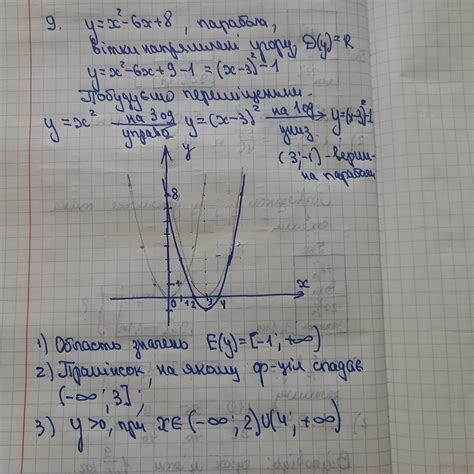 9. y=x²-6x+8, парабола,
вітки напрямлені угору, D(y)=R
y=x²-6x+9-1=(x-3)²-1
Побудуємо переміщенням.
y=x² на 3 од управо y=(x-3)² на 1 од униз y=(x-3)²-1
(3;-1)-верши-
на параболи
y
8
1
0 1 2 3 4 x
1) Область значень E(y)=[-1;+∞)
2) Проміжок, на якому ф-ція спадає
(-∞;3];
3) y>0, при x∈(-∞;2)∪(4;+∞)